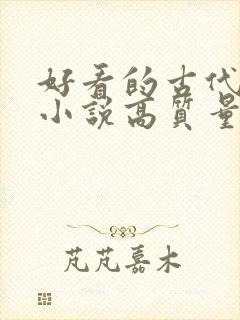 好看的古代
小說高質量
芃芃嘉木